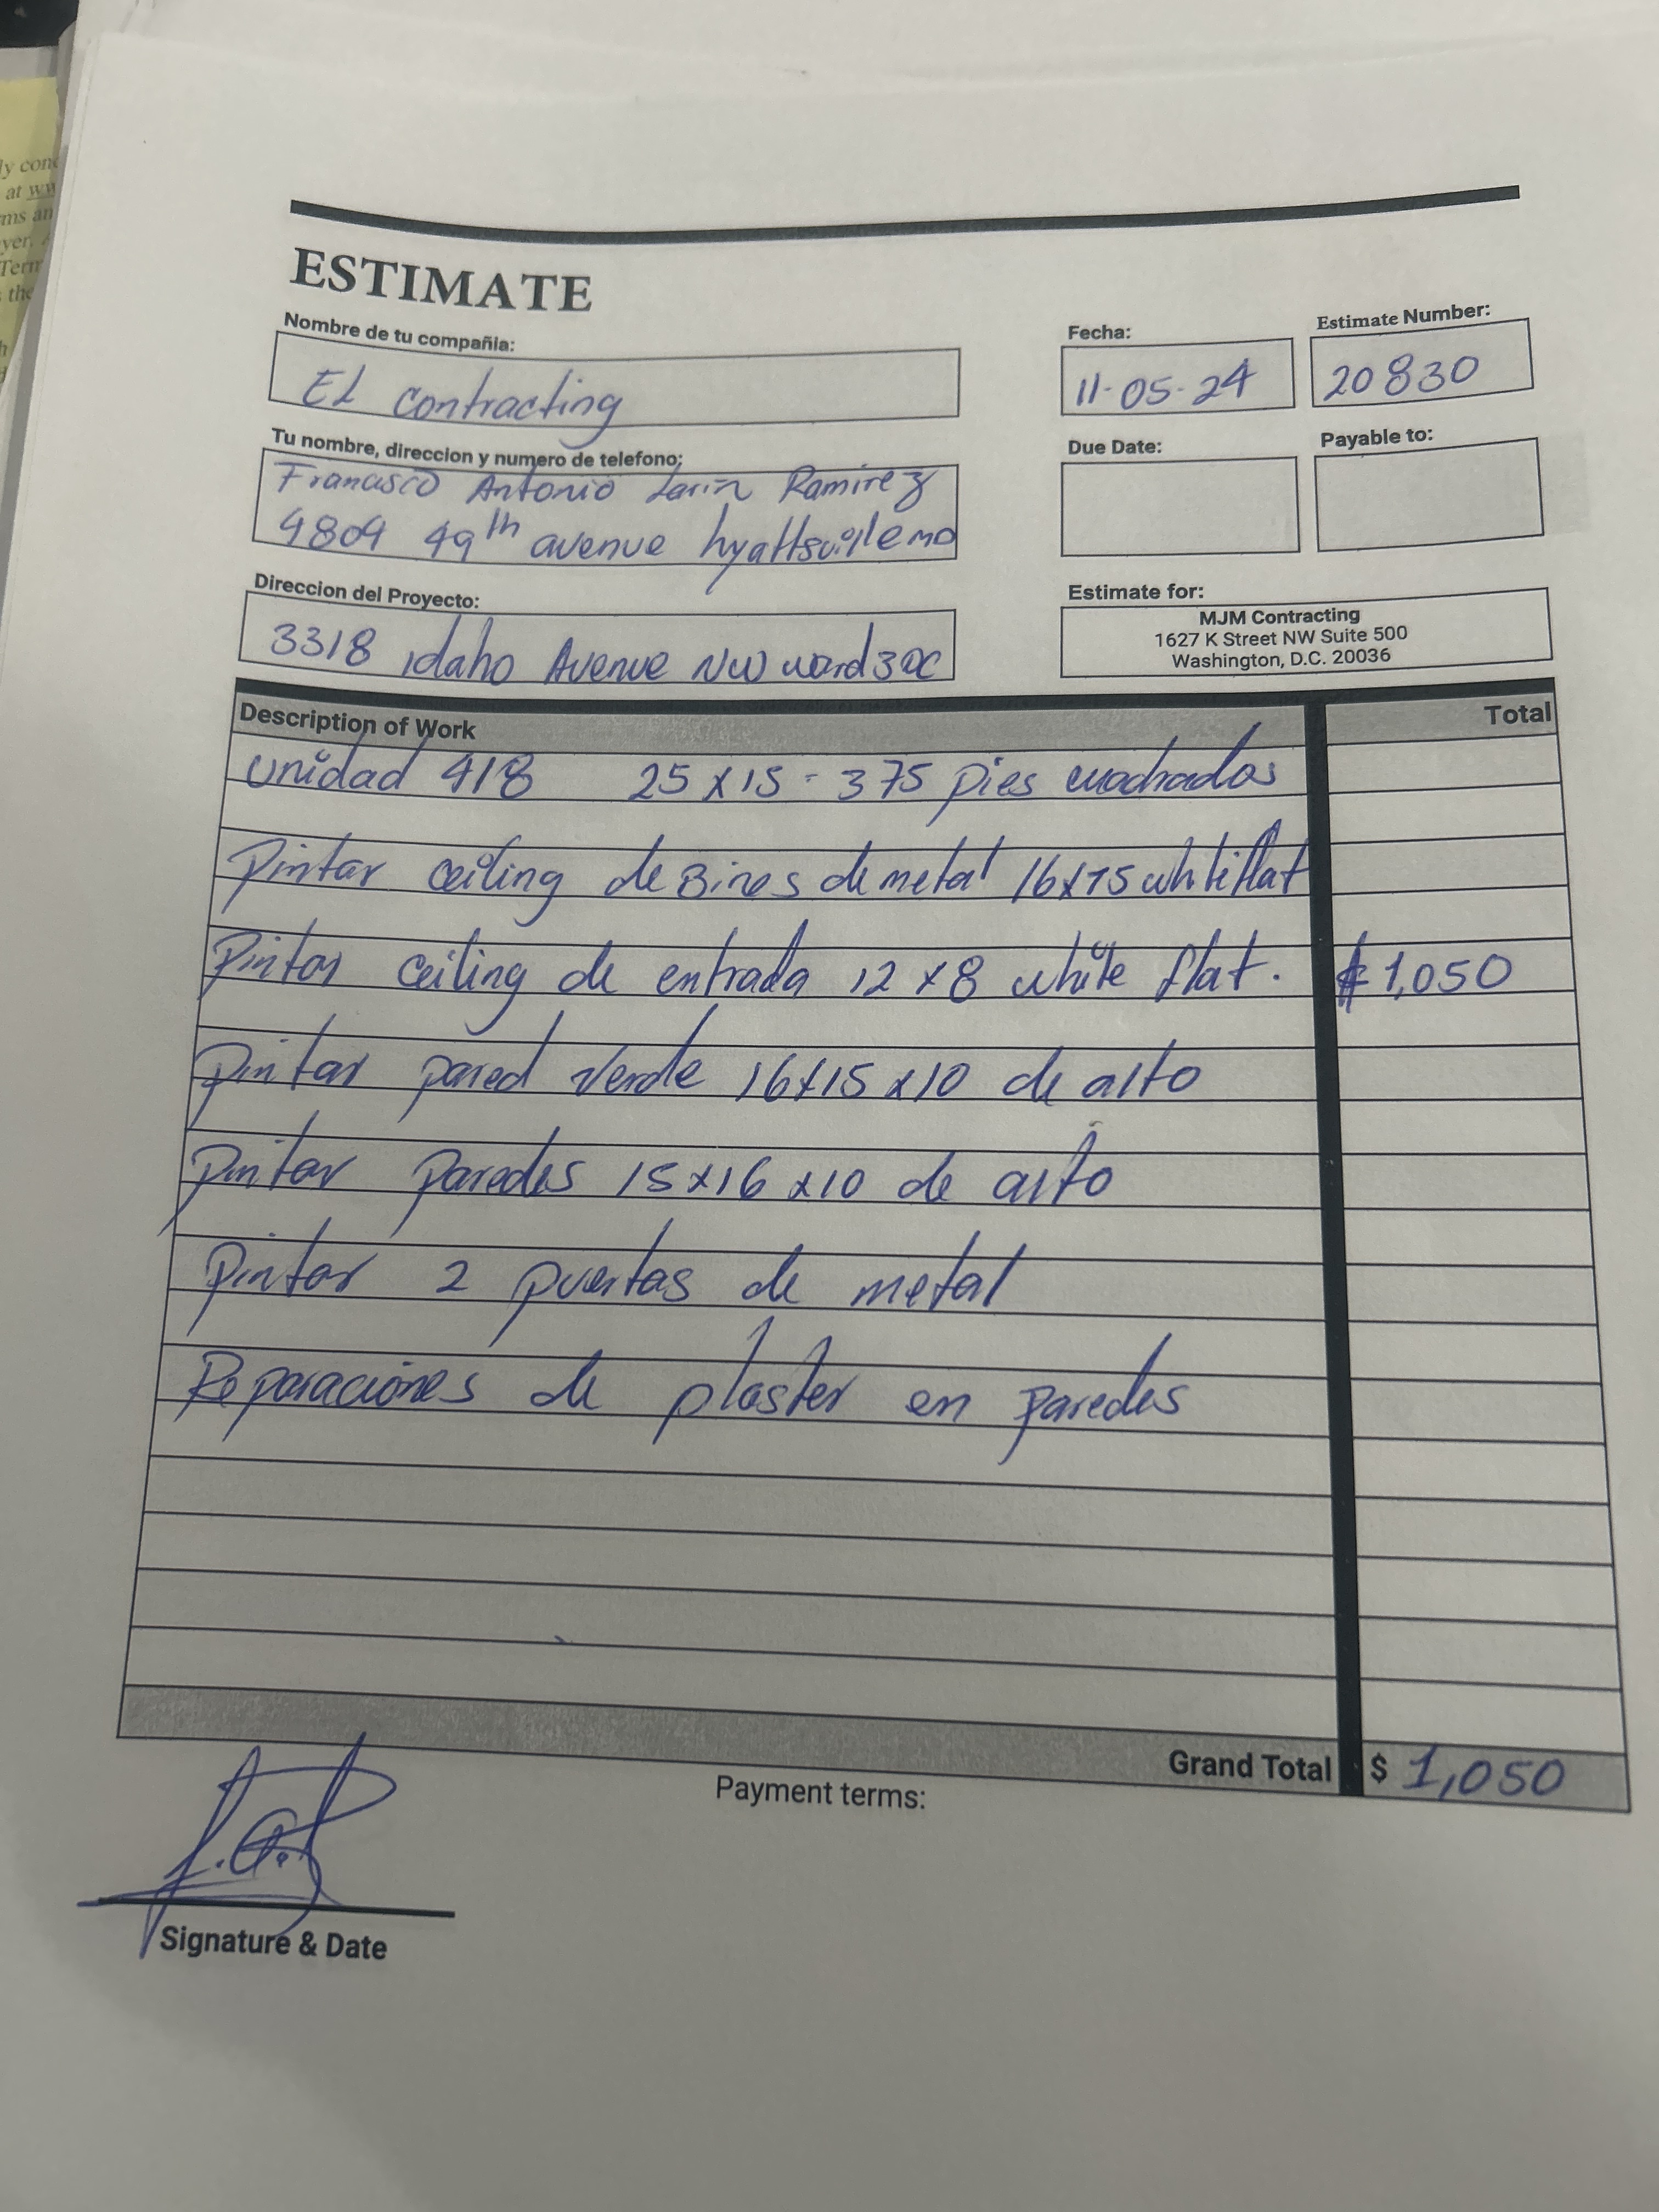 ly conc
at ww
ms an
yer. A
Term
the
ESTIMATE
Nombre de tu compañia:
EL contracting
Fecha:
11-05-24
Estimate Number:
20830
Tu nombre, direccion y numero de telefono:
Francisco Antonio Larin Ramirez
4804 49th avenue hyattsville MD
Due Date:
Payable to:
Direccion del Proyecto:
3318 idaho Avenue NW ward 3 DC
Estimate for:
MJM Contracting
1627 K Street NW Suite 500
Washington, D.C. 20036
Description of Work Total
unidad 418 25 x 15 - 375 pies cuadrados
Pintar ceiling de Bines de metal 16x15 white flat
Pintar ceiling de entrada 12 x 8 white flat. $1,050
pintar pared verde 16x15 x10 de alto
pintar paredes 15x16 x10 de alto
pintar 2 puertas de metal
Reparaciones de plaster en paredes
Grand Total $ 1,050
Payment terms:
Signature & Date